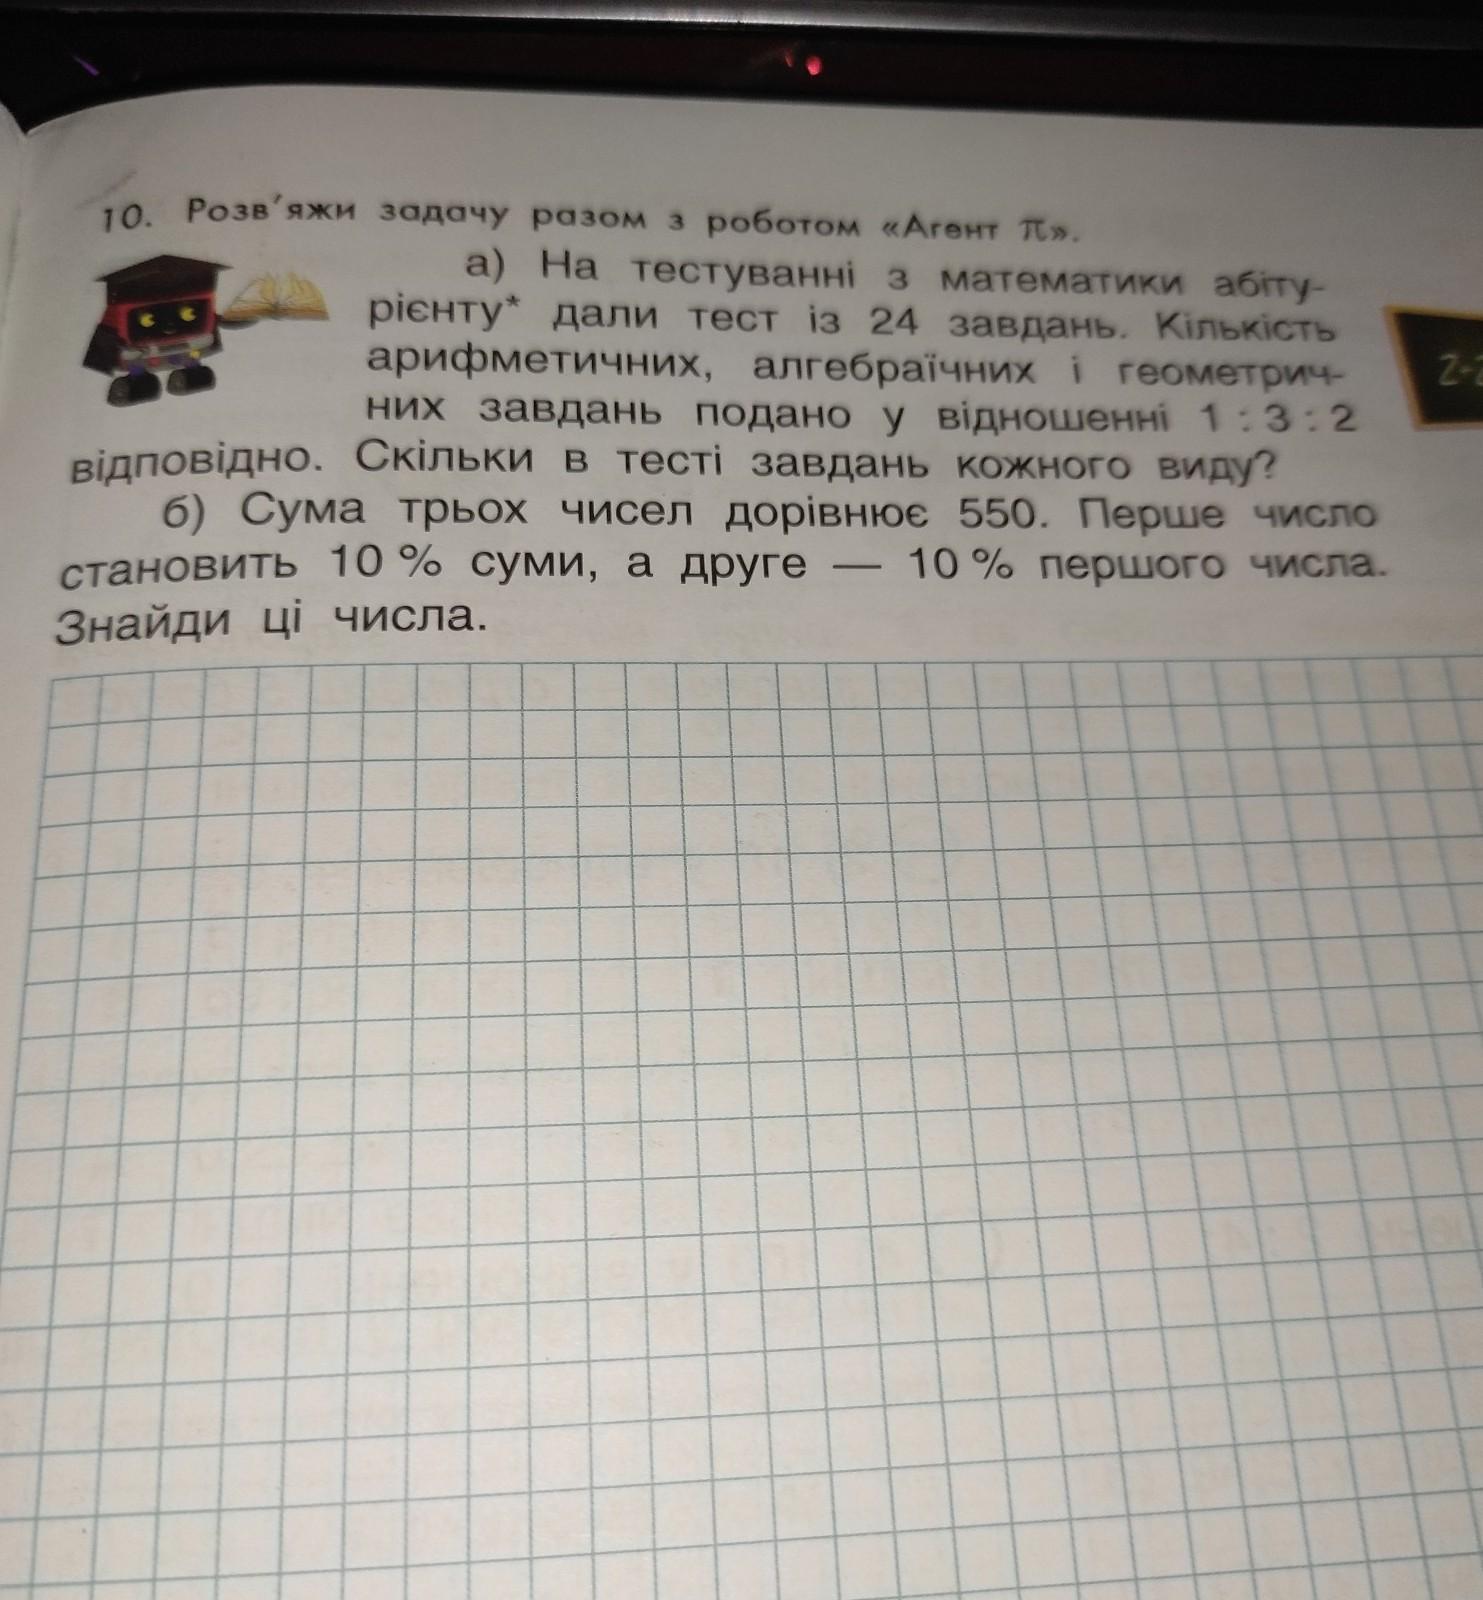 10. Розв'яжи задачу разом з роботом «Агент π».
а) На тестуванні з математики абіту-
рієнту* дали тест із 24 завдань. Кількість
арифметичних, алгебраїчних і геометрич-
них завдань подано у відношенні 1 : 3 : 2
відповідно. Скільки в тесті завдань кожного виду?
б) Сума трьох чисел дорівнює 550. Перше число
становить 10 % суми, а друге — 10 % першого числа.
Знайди ці числа.